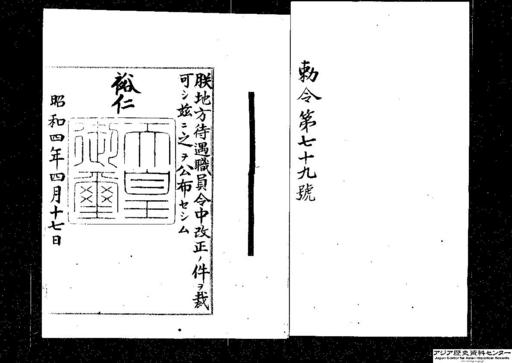 勅令第七十九號
朕地方待遇職員令中改正ノ件ヲ裁
可シ茲ニ之ヲ公布セシム
裕仁
天皇
御璽
昭和四年四月十七日
アジア歴史資料センター
Japan Center for Asian Historical Records